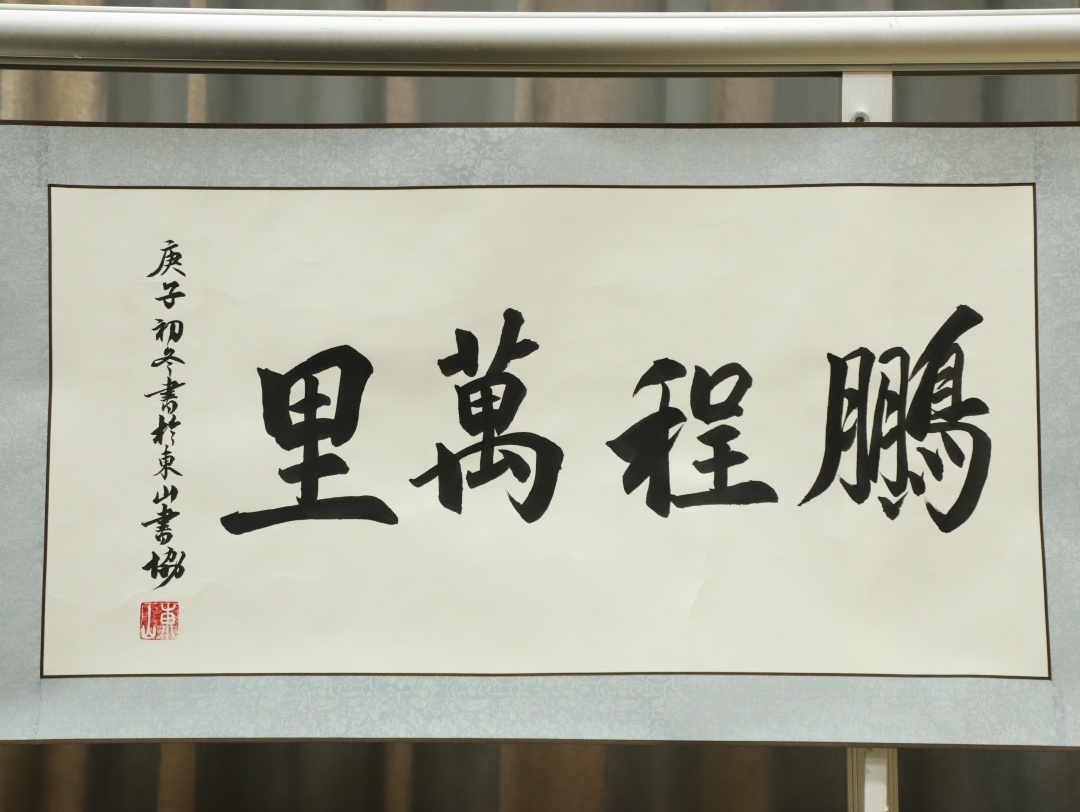 鵬程萬里
庚子初冬書於東山書協
東山